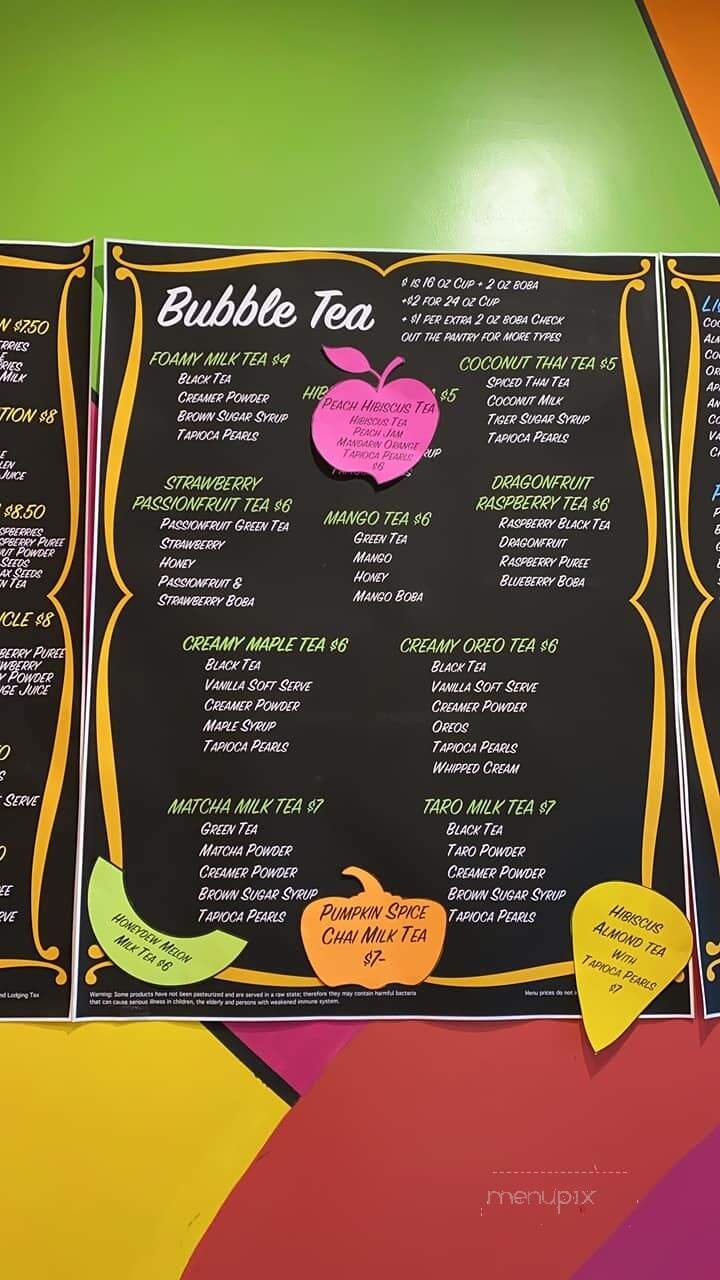 N $7.50
RRIES
MILK
TION $8
JUICE
$8.50
SPBERRIES
SPBERRY PUREE
NUT POWDER
SEEDS
AX SEEDS
N TEA
ICLE $8
BERRY PUREE
WBERRY
Y POWDER
GE JUICE
SERVE
nd Lodging Tax
Bubble Tea
$ IS 16 OZ CUP + 2 OZ BOBA
+$2 FOR 24 OZ CUP
+ $1 PER EXTRA 2 OZ BOBA CHECK
OUT THE PANTRY FOR MORE TYPES
FOAMY MILK TEA $4
BLACK TEA
CREAMER POWDER
BROWN SUGAR SYRUP
TAPIOCA PEARLS
HIB
A $5
RUP
PEACH HIBISCUS TEA
HIBISCUS TEA
PEACH JAM
MANDARIN ORANGE
TAPIOCA PEARLS
$6
COCONUT THAI TEA $5
SPICED THAI TEA
COCONUT MILK
TIGER SUGAR SYRUP
TAPIOCA PEARLS
STRAWBERRY
PASSIONFRUIT TEA $6
PASSIONFRUIT GREEN TEA
STRAWBERRY
HONEY
PASSIONFRUIT &
STRAWBERRY BOBA
MANGO TEA $6
GREEN TEA
MANGO
HONEY
MANGO BOBA
DRAGONFRUIT
RASPBERRY TEA $6
RASPBERRY BLACK TEA
DRAGONFRUIT
RASPBERRY PUREE
BLUEBERRY BOBA
CREAMY MAPLE TEA $6
BLACK TEA
VANILLA SOFT SERVE
CREAMER POWDER
MAPLE SYRUP
TAPIOCA PEARLS
CREAMY OREO TEA $6
BLACK TEA
VANILLA SOFT SERVE
CREAMER POWDER
OREOS
TAPIOCA PEARLS
WHIPPED CREAM
MATCHA MILK TEA $7
GREEN TEA
MATCHA POWDER
CREAMER POWDER
BROWN SUGAR SYRUP
TAPIOCA PEARLS
TARO MILK TEA $7
BLACK TEA
TARO POWDER
CREAMER POWDER
BROWN SUGAR SYRUP
TAPIOCA PEARLS
HONEYDEW MELON
MILK TEA $6
PUMPKIN SPICE
CHAI MILK TEA
$7-
HIBISCUS
ALMOND TEA
WITH
TAPIOCA PEARLS
$7
Warning: Some products have not been pasteurized and are served in a raw state; therefore they may contain harmful bacteria
that can cause serious illness in children, the elderly and persons with weakened immune system.
Menu prices do not i
menupix